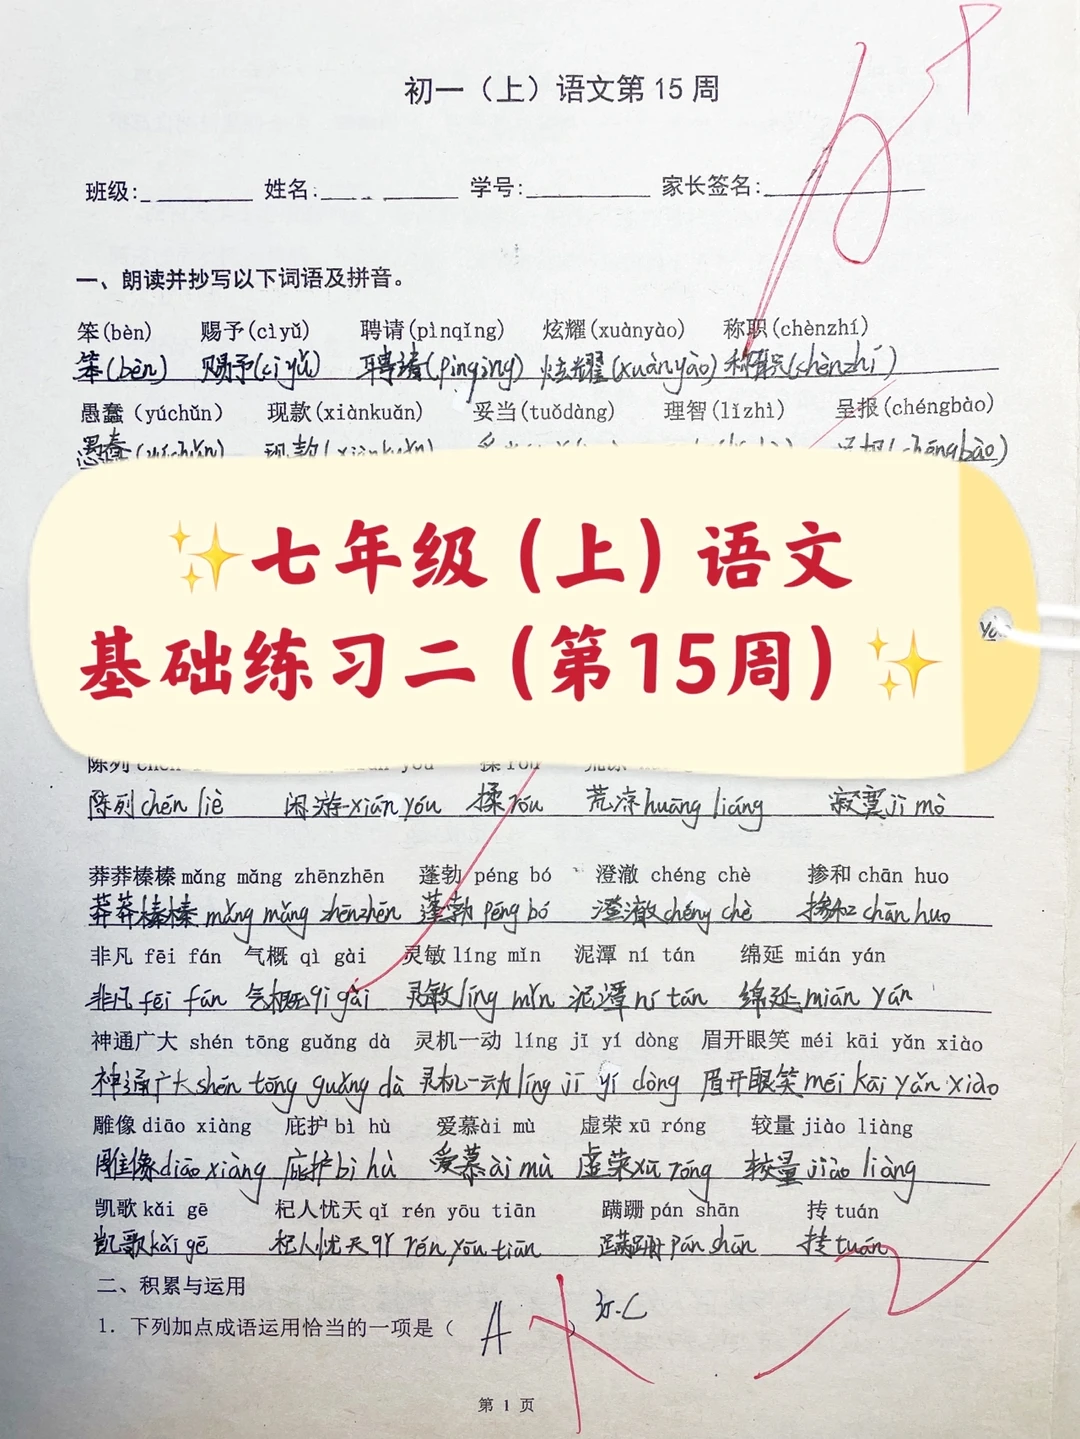 初一（上）语文第 15 周
班级: 姓名: 学号: 家长签名:
一、朗读并抄写以下词语及拼音。
笨(bèn) 赐予(cìyǔ) 聘请(pìnqǐng) 炫耀(xuànyào) 称职(chènzhí)
笨(bèn) 赐予(cìyǔ) 聘请(pìnqǐng) 炫耀(xuànyào) 称职(chènzhí)
愚蠢 (yúchǔn) 现款(xiànkuǎn) 妥当(tuǒdàng) 理智(lǐzhì) 呈报(chéngbào)
愚蠢(yúchǔn) 现款(xiànkuǎn) 呈报(chéngbào)
✨七年级（上）语文
基础练习二（第15周）✨
陈列
陈列 chén liè 闲游 xián yóu 揉 róu 荒凉 huāng liáng 寂寞 jì mò
莽莽榛榛 mǎng mǎng zhēnzhēn 蓬勃 péng bó 澄澈 chéng chè 掺和 chān huo
莽莽榛榛 mǎng mǎng zhēnzhēn 蓬勃 péng bó 澄澈 chéng chè 掺和 chān huo
非凡 fēi fán 气概 qì gài 灵敏 líng mǐn 泥潭 ní tán 绵延 mián yán
非凡 fēi fán 气概 qì gài 灵敏 líng mǐn 泥潭 ní tán 绵延 mián yán
神通广大 shén tōng guǎng dà 灵机一动 líng jī yí dòng 眉开眼笑 méi kāi yǎn xiào
神通广大 shén tōng guǎng dà 灵机一动 líng jī yí dòng 眉开眼笑 méi kāi yǎn xiào
雕像 diāo xiàng 庇护 bì hù 爱慕 ài mù 虚荣 xū róng 较量 jiào liàng
雕像 diāo xiàng 庇护 bì hù 爱慕 ài mù 虚荣 xū róng 较量 jiào liàng
凯歌 kǎi gē 杞人忧天 qǐ rén yōu tiān 蹒跚 pán shān 抟 tuán
凯歌 kǎi gē 杞人忧天 qǐ rén yōu tiān 蹒跚 pán shān 抟 tuán
二、积累与运用
1. 下列加点成语运用恰当的一项是（ A ）
第 1 页